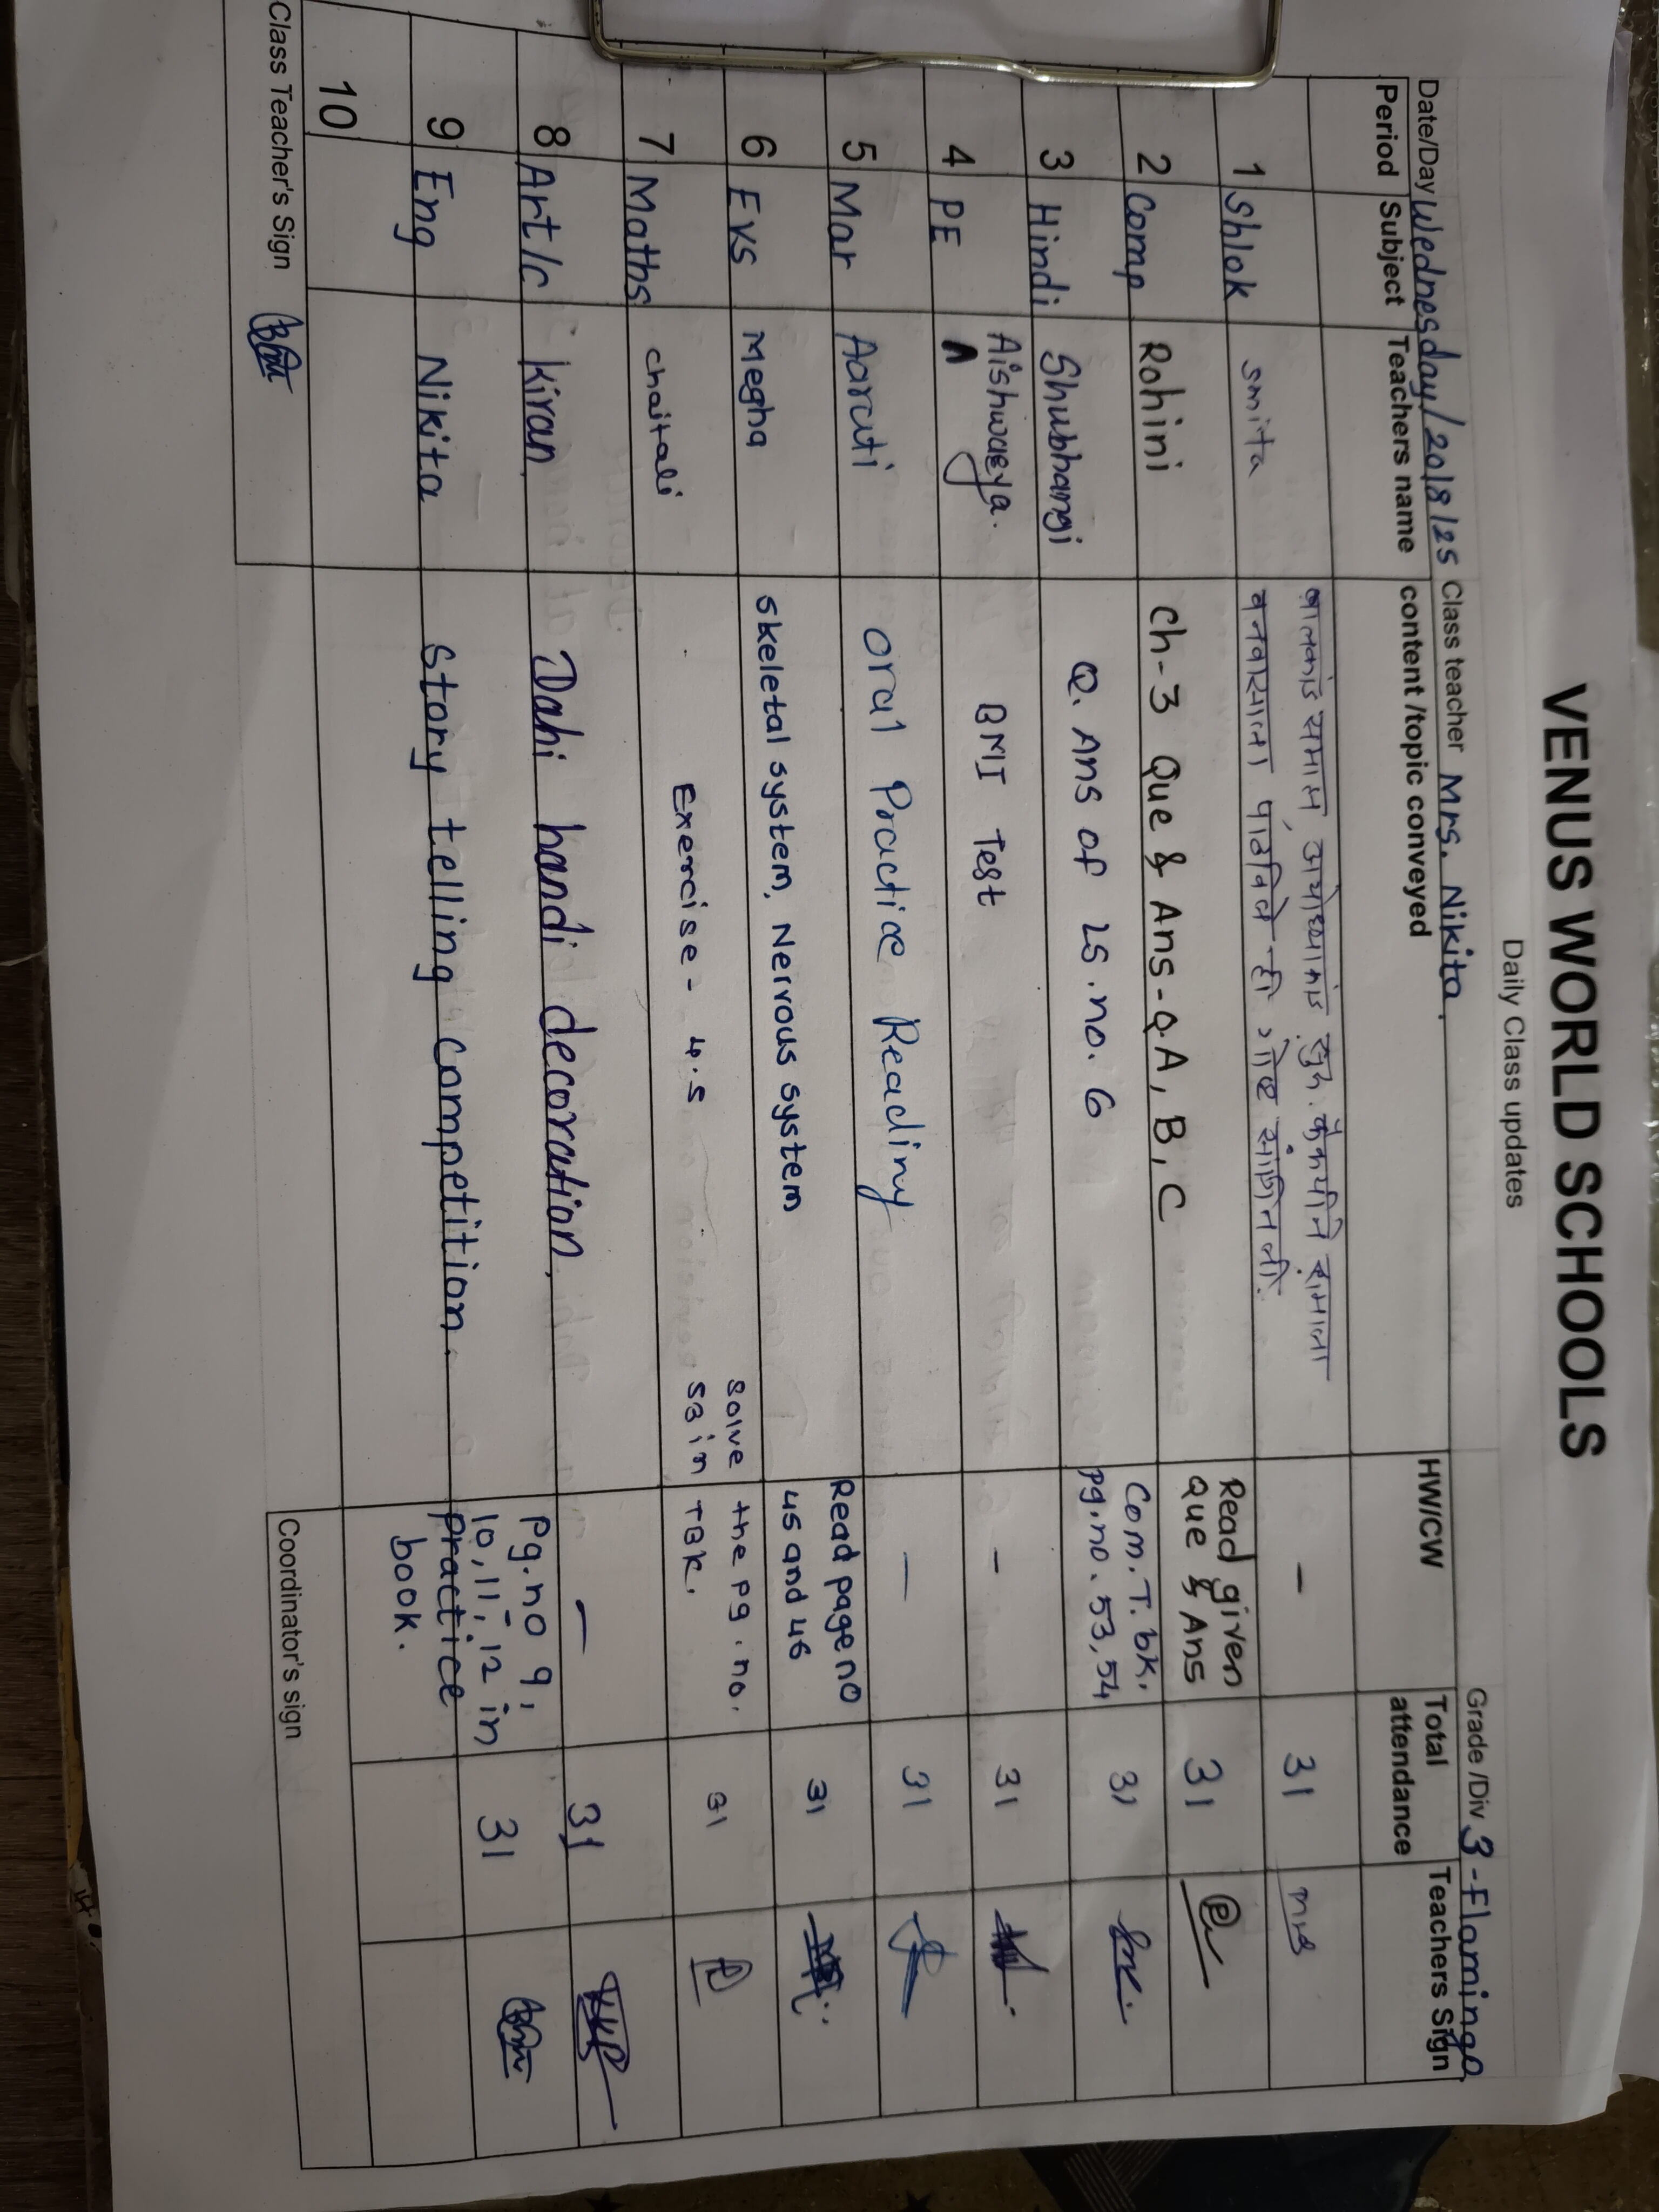 VENUS WORLD SCHOOLS
Daily Class updates
Date/Day Wednesday/20/8/25 Class teacher Mrs. Nikita. Grade /Div 3-Flamingo
Period Subject Teachers name content /topic conveyed HW/CW Total attendance Teachers Sign
1 Shlok smita बालकांड समाप्त, अयोध्याकांड सुरु. कैकयीने रामाला
वनवासाला पाठविले ही गोष्ट सांगितली. - 31
2 Comp Rohini Ch-3 Que & Ans-Q.A, B, C Read given
Que & Ans 31
3 Hindi Shubhangi Q. Ans of LS.no. 6 Com. T. bk.
pg.no. 53,54 31
4 PE Aishwarya. BMI Test - 31
5 Mar Aarati Oral Practice Reading - 31
6 EVS Megha skeletal system, Nervous system Read page no
45 and 46 31
7 Maths chaitali Exercise - 4.5 solve the pg. no.
53 in TBK. 31
8 Art/c kiran Dahi handi decoration, - 31
9 Eng Nikita Story telling Competition. Pg.no 9,
10, 11, 12 in
practice
book. 31
10
Class Teacher's Sign Coordinator's sign